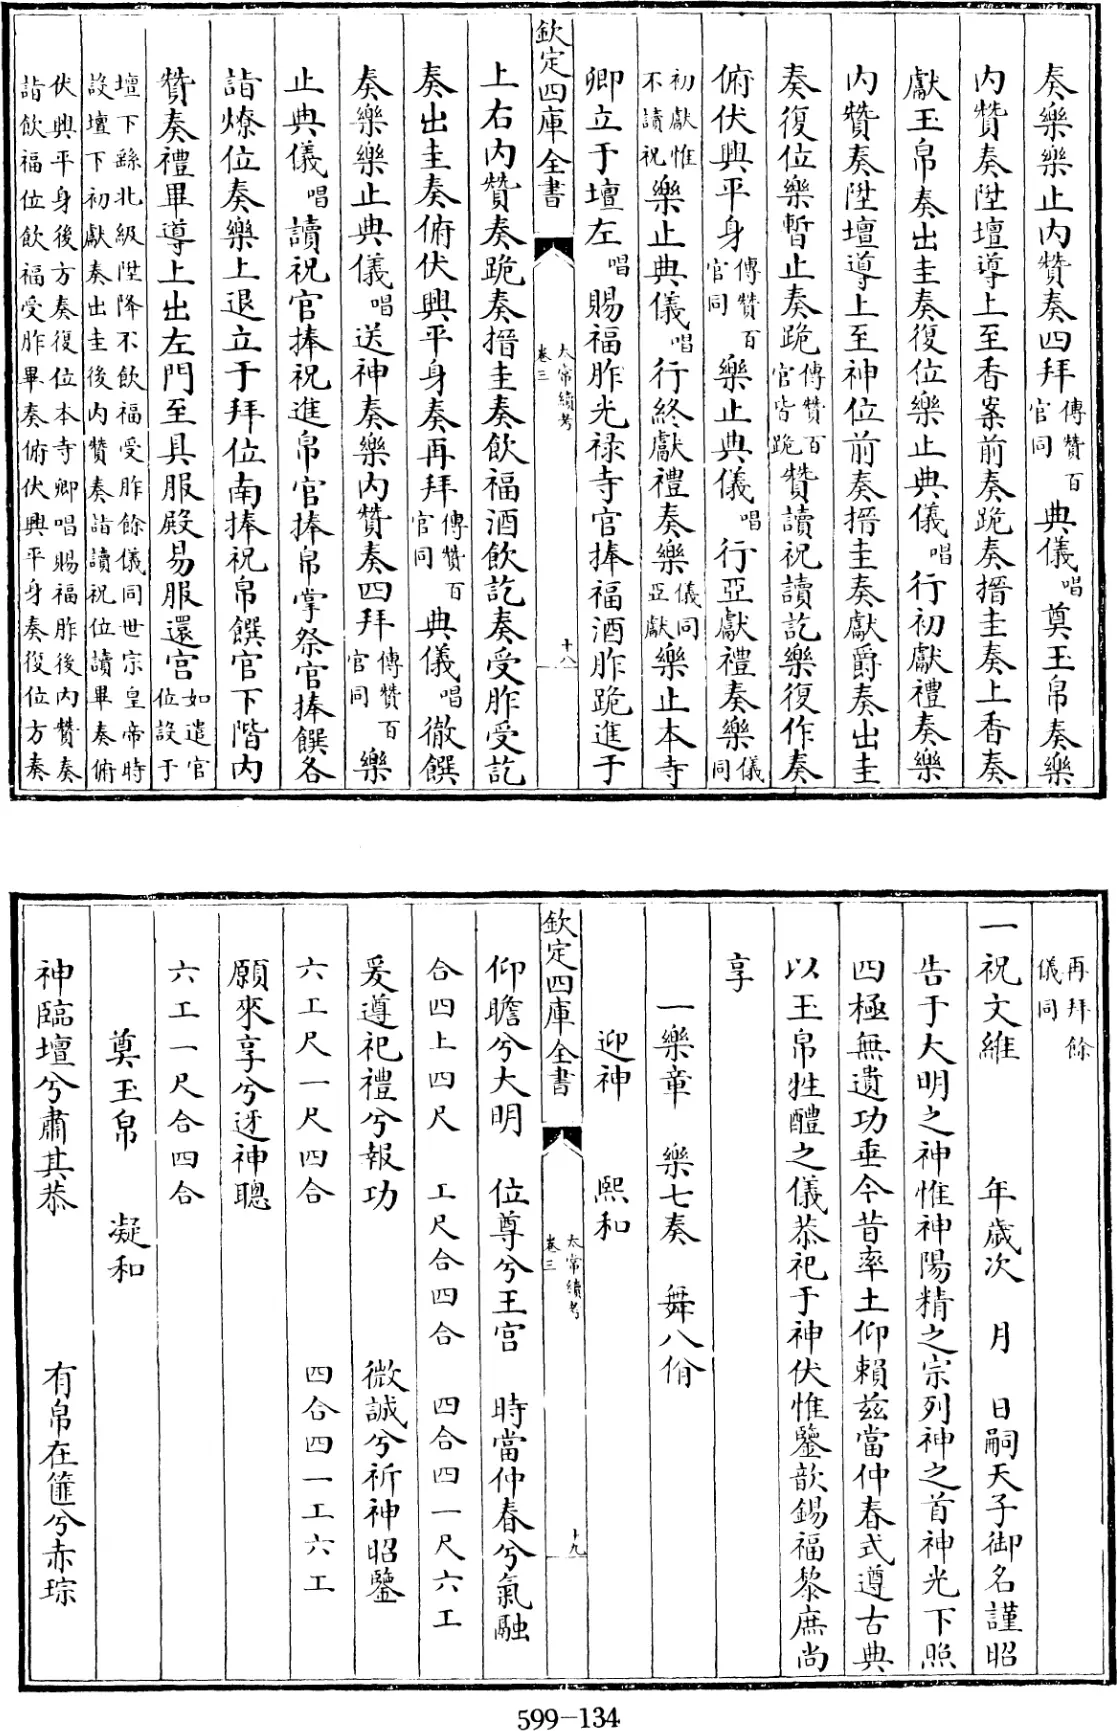 奏樂樂止內贊奏四拜傳贊百官同典儀唱奠玉帛奏樂
內贊奏陞壇導上至香案前奏跪奏搢圭奏上香奏
獻玉帛奏出圭奏復位樂止典儀唱行初獻禮奏樂
內贊奏陞壇導上至神位前奏搢圭奏獻爵奏出圭
奏復位樂暫止奏跪傳贊百官皆跪贊讀祝讀訖樂復作奏
俯伏興平身傳贊百官同樂止典儀唱行亞獻禮奏樂儀同
初獻惟不讀祝樂止典儀唱行終獻禮奏樂儀同亞獻樂止本寺
卿立于壇左唱賜福胙光祿寺官捧福酒胙跪進于
欽定四庫全書 太常續考 卷三 十八
上右內贊奏跪奏搢圭奏飲福酒飲訖奏受胙受訖
奏出圭奏俯伏興平身奏再拜傳贊百官同典儀唱徹饌
奏樂樂止典儀唱送神奏樂內贊奏四拜傳贊百官同樂
止典儀唱讀祝官捧祝進帛官捧帛掌祭官捧饌各
詣燎位奏樂上退立于拜位南捧祝帛饌官下階內
贊奏禮畢導上出左門至具服殿易服還宮如遣官位設于
壇下繇北級陞降不飲福受胙餘儀同世宗皇帝時
設壇下初獻奏出圭後內贊奏詣讀祝位讀畢奏俯
伏興平身後方奏復位本寺卿唱賜福胙後內贊奏
詣飲福位飲福受胙畢奏俯伏興平身奏復位方奏
再拜餘儀同
一祝文維 年歲次 月 日嗣天子御名謹昭
告于大明之神惟神陽精之宗列神之首神光下照
四極無遺功垂今昔率土仰賴茲當仲春式遵古典
以玉帛牲醴之儀恭祀于神伏惟鑒歆錫福黎庶尚
享
一樂章 樂七奏 舞八佾
迎神 熙和
欽定四庫全書 太常續考 卷三 十九
仰瞻兮大明 位尊兮王宮 時當仲春兮氣融
合四上四尺 工尺合四合 四合四一尺六工
爰遵祀禮兮報功 微誠兮祈神昭鑒
六工尺一尺四合 四合四一工六工
願來享兮迓神聰
六工一尺合四合
奠玉帛 凝和
神臨壇兮肅其恭 有帛在篚兮赤琮
599-134